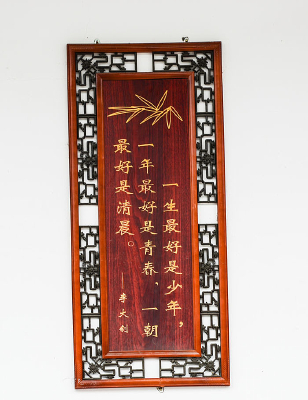 一生最好是少年，
一年最好是青春、一朝
最好是清晨。
——李大钊